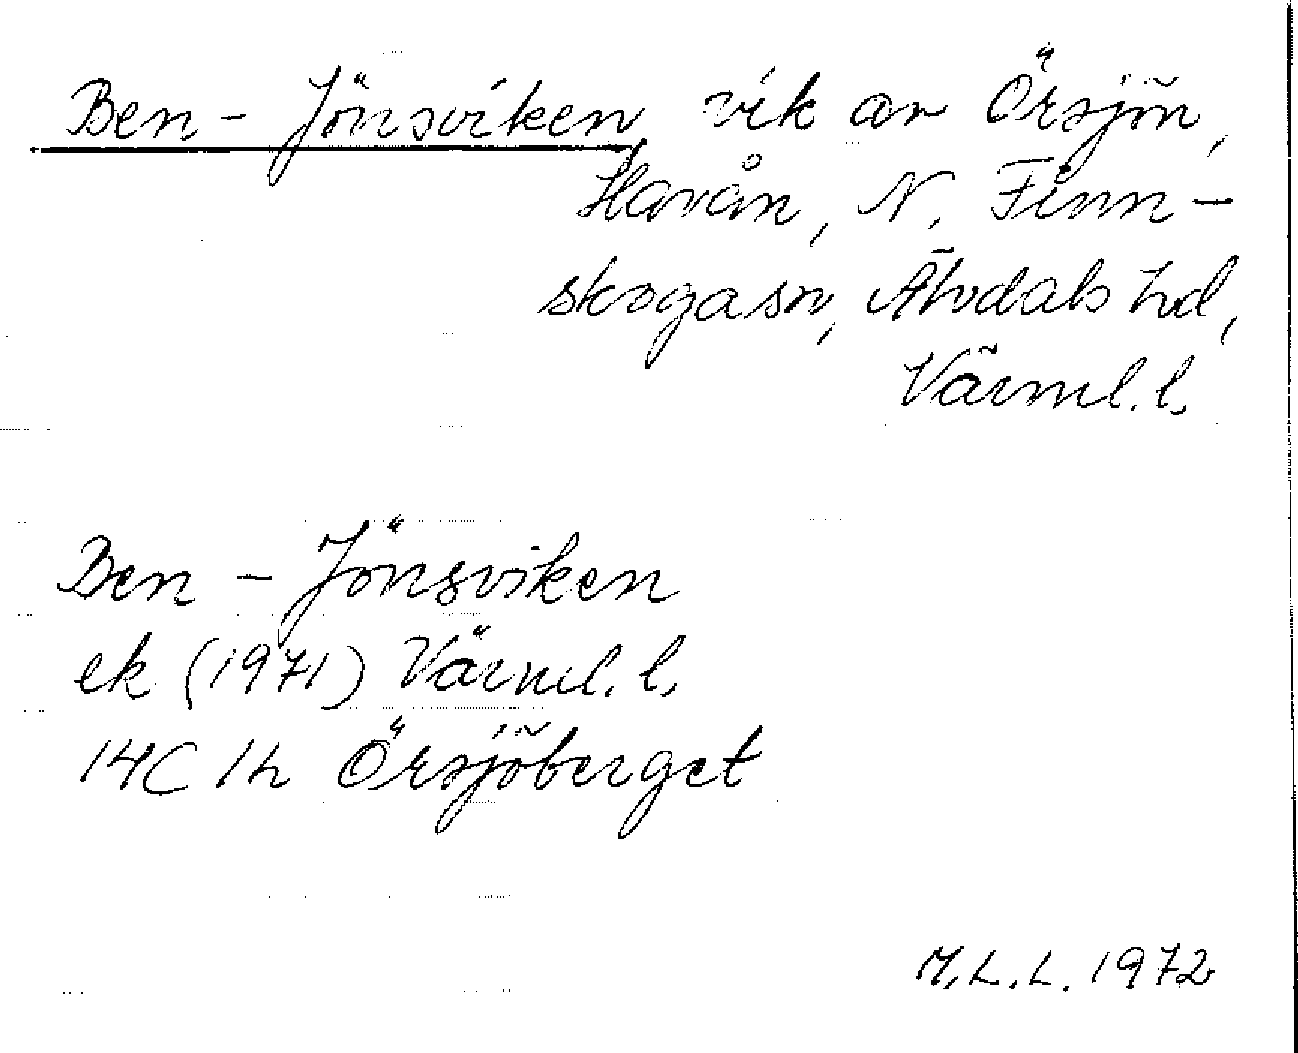 Ben-Jönsviken vik av Örsjön,
Havån, N. Finn-
skogasn, Älvdals hd,
Värml. l.
Ben-Jönsviken
ek (1971) Värml. l.
14C 1h Örsjöberget
M.L.L. 1972